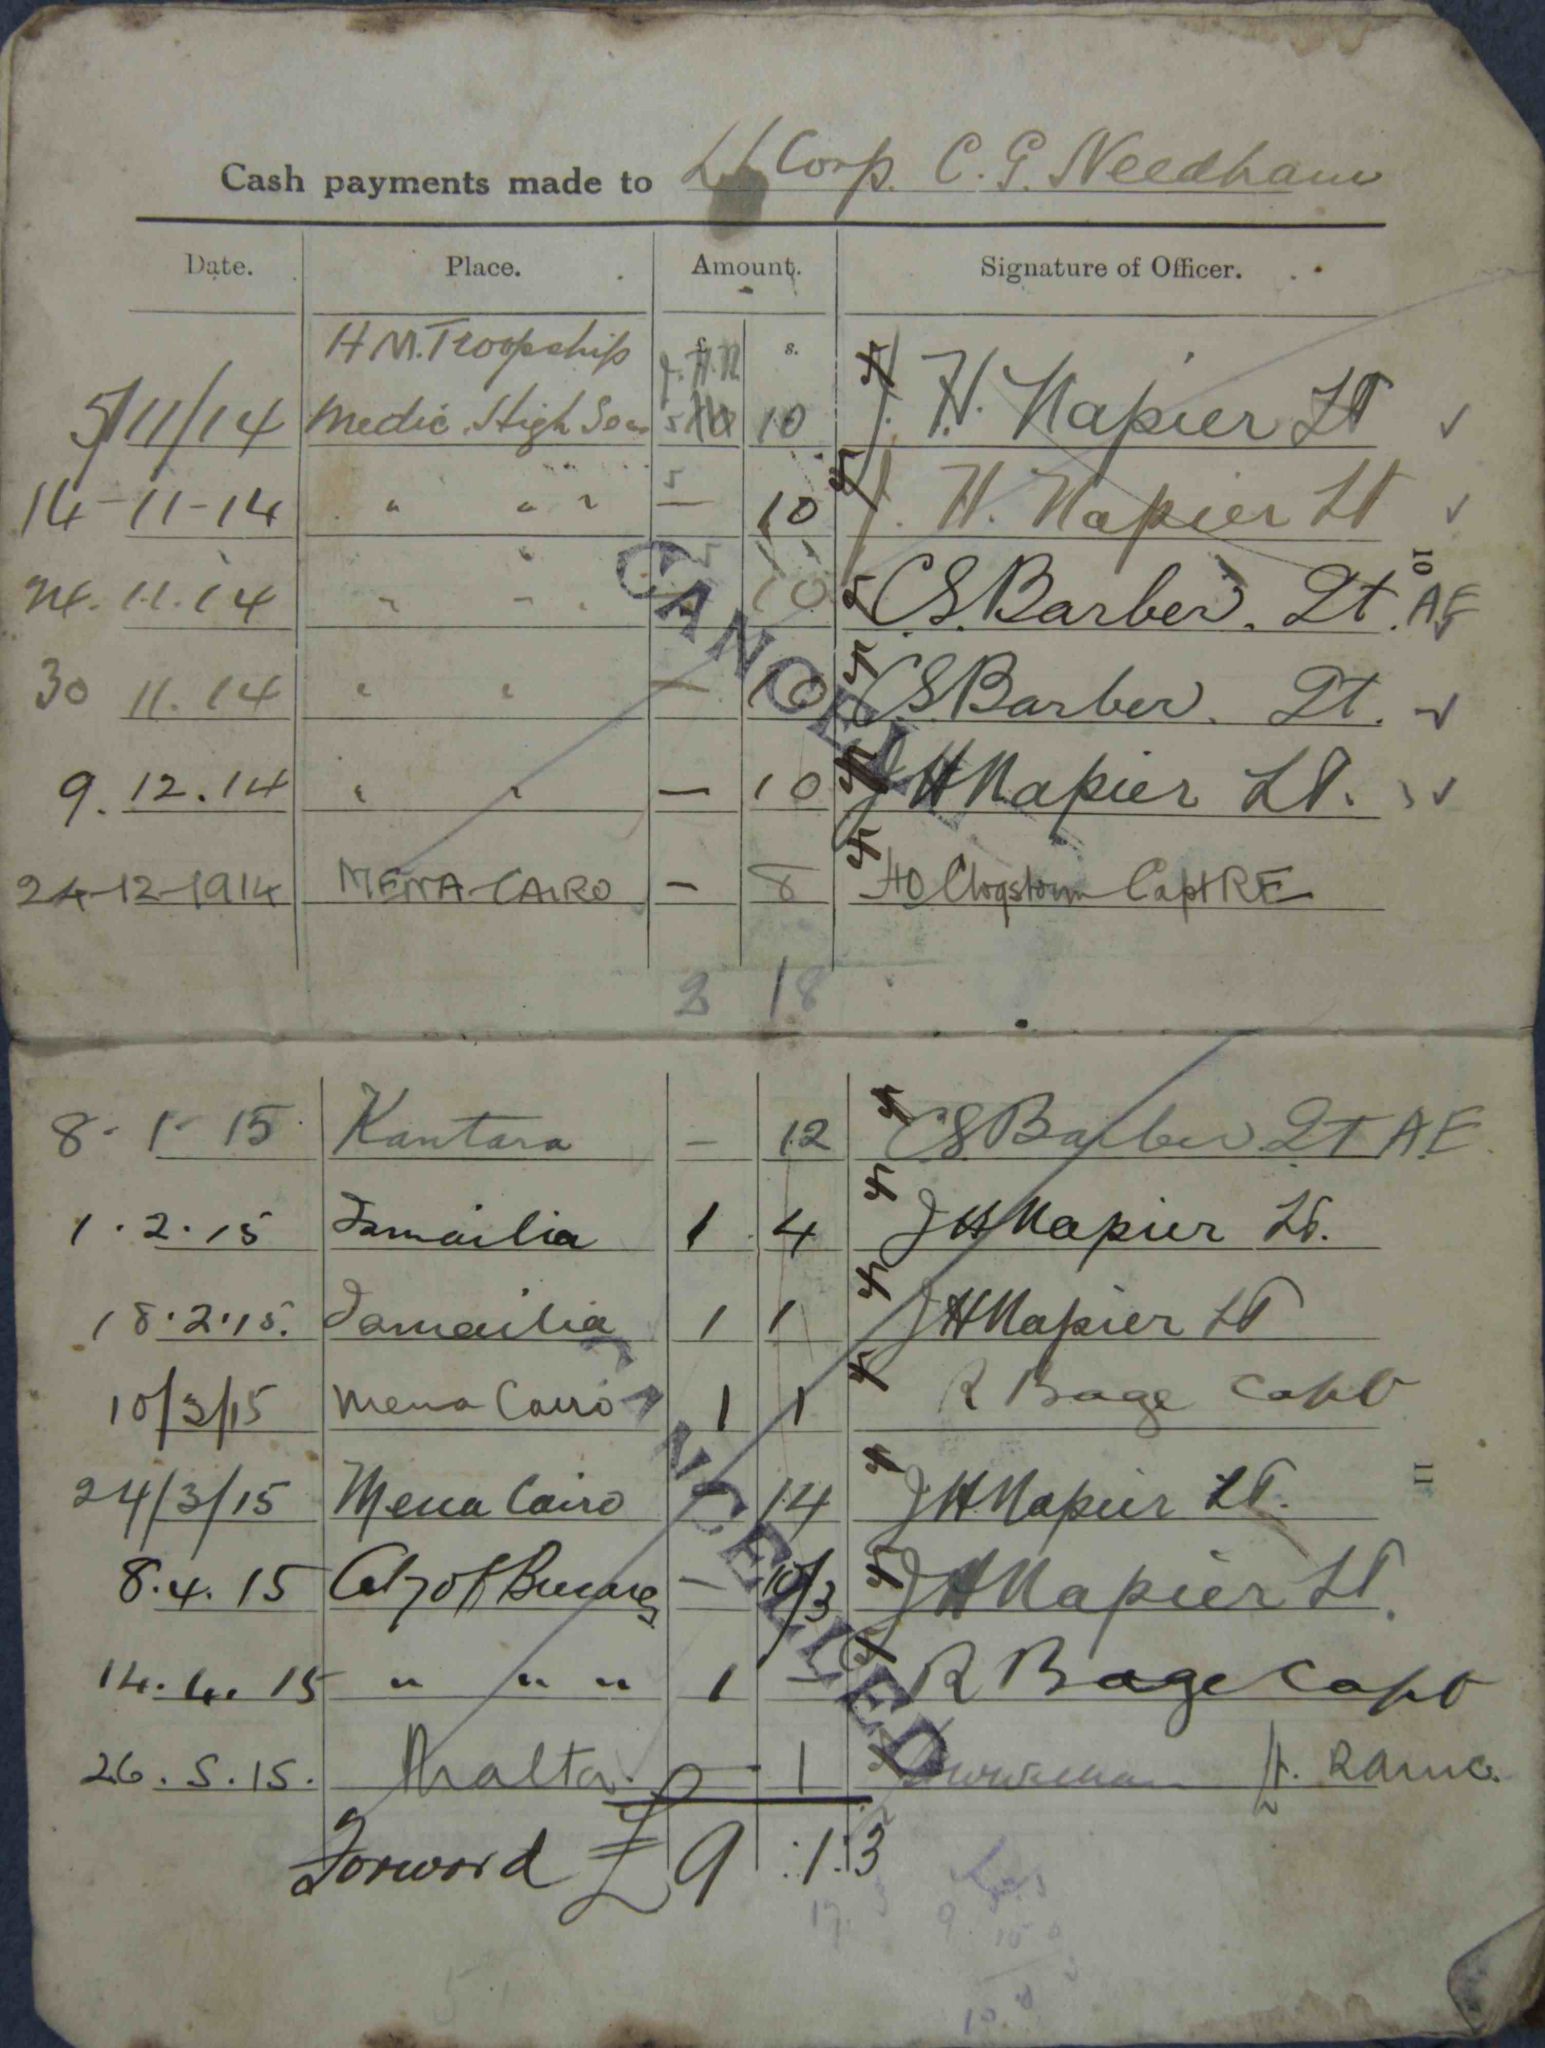 Cash payments made to L/Corp. C. G. Needham
Date. Place. Amount. Signature of Officer.
H M. Troopship £ s.
J. H. N
5/11/14 Medic. High Seas 10 J. H. Napier Lt ✓
14-11-14 " " " — 10 J. H. Napier Lt ✓
10
24.11.14 " " " — 10 C.S. Barber. Lt. A.E ✓
30 11.14 " " — 10 C.S. Barber. Lt. ✓
9.12.14 " " — 10 J H Napier Lt. ✓
24-12-1914 MENA-CAIRO — 8 HO Clogstoun Capt RE
2 18
CANCELL
8-1-15 Kantara — 12 C.S. Barber Lt A.E.
1.2.15 Ismailia 1 4 J H Napier Lt.
18.2.15. Ismailia 1 1 J H Napier Lt
10/3/15 Mena Cairo 1 1 R Bage Capt
11
24/3/15 Mena Cairo — 14 J H Napier Lt.
8.4.15 City of Benares — 10/3 J H Napier Lt.
14.4.15 " " " 1 — R Bage Capt
26.5.15. Malta. — 1 Lt. RAMC.
CANCELLED
Forward £ 9 : 1 : 3